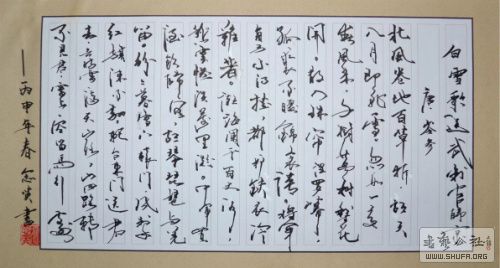 白雪歌送武判官歸京
唐 岑參
北風卷地百草折，胡天
八月即飛雪。忽如一夜
春風來，千樹萬樹梨花
開。散入珠簾濕羅幕，
狐裘不暖錦衾薄。將軍
角弓不得控，都护鐵衣冷
難著。瀚海闌干百丈冰，
愁雲慘淡萬里凝。中軍置
酒飲歸客，胡琴琵琶與羌
笛。紛紛暮雪下轅門，風掣
紅旗凍不翻。輪臺東門送君
去，去時雪滿天山路。山回路轉
不見君，雪上空留馬行處
——丙申年春 書
書法公社
WWW.SHUFA.ORG